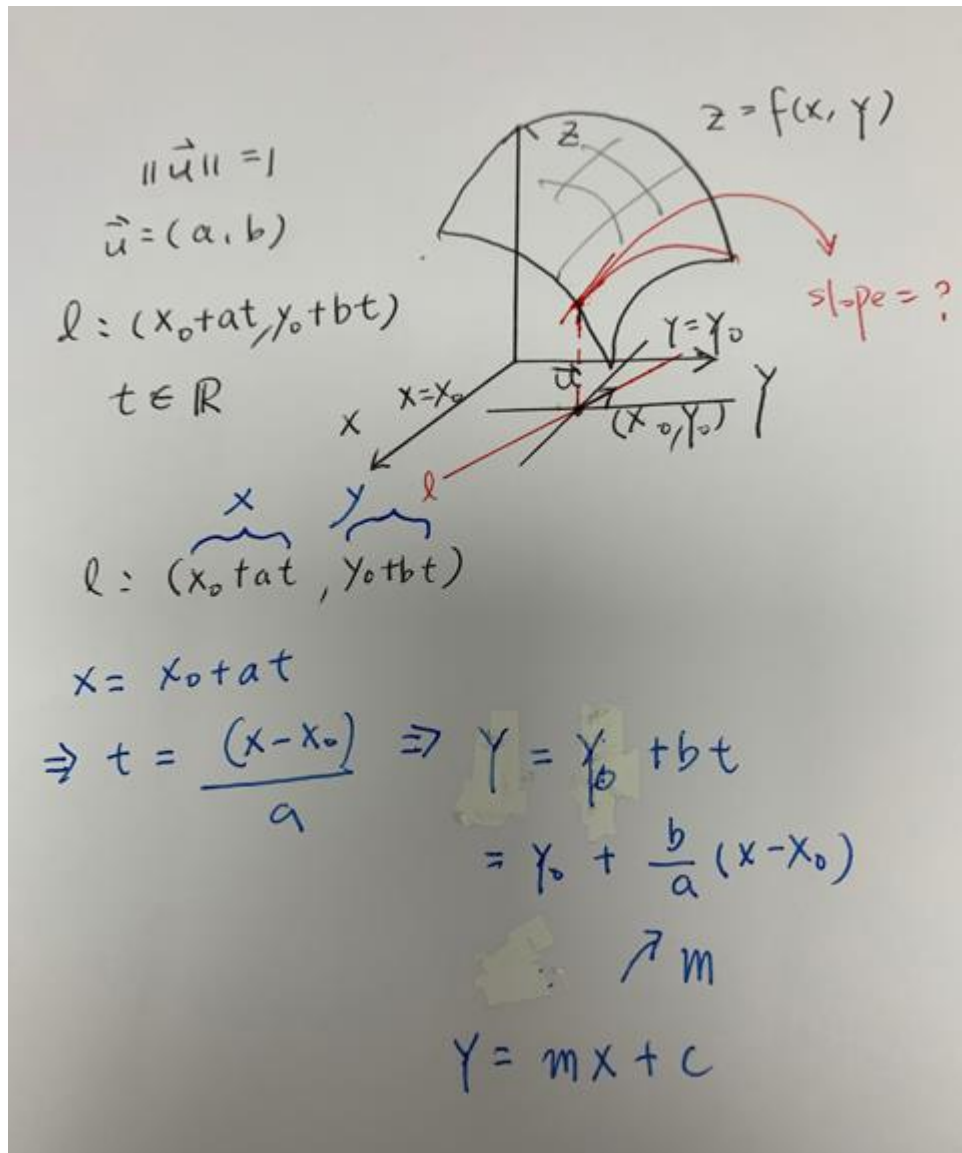 z = f(x, y)
‖u⃗‖ = 1
u⃗ = (a, b)
l : (x₀+at, y₀+bt)
t ∈ ℝ
z
slope = ?
y = y₀
x = x₀
u⃗
(x₀, y₀)
Y
x
l
x y
l : (x₀+at, y₀+bt)
x = x₀+at
⇒ t = (x-x₀)/a ⇒ Y = y₀ + bt
= y₀ + b/a (x-x₀)
↗ m
Y = mx + c